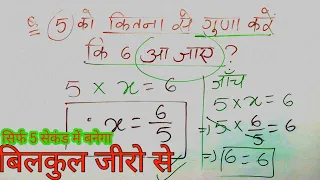 Q. 5 को कितना से गुणा करें
कि 6 आ जाए ?
5 × x = 6
∴ x = 6/5
जाँच
5 × x = 6
⇒ 5 × 6/5 = 6
⇒ 6 = 6
सिर्फ 5 सेकंड में बनेगा
बिलकुल जीरो से